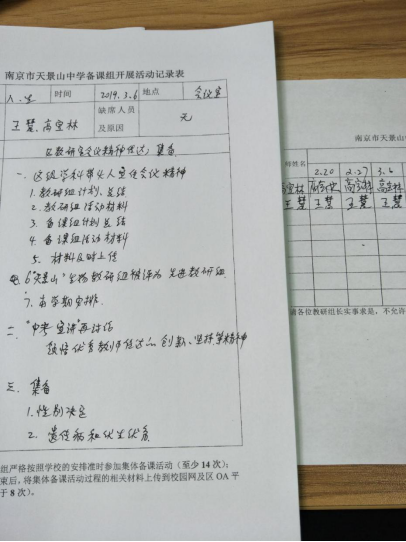 南京市天景山中学备课组开展活动记录表
八.生 时间 2019.3.6 地点 会议室
王慧、高宜林 缺席人员及原因 无
区教研室会议精神传达；集备
一、区级学科带头人宣传会议精神
1. 教研组计划、总结
2. 教研组活动材料
3. 备课组计划总结
4. 备课组活动材料
5. 材料及时上传
6."天景山"生物教研组被评为先进教研组
7. 本学期安排.
二、"中考宣讲"再评估
领悟优秀教师传达的创新、坚持等精神
三、集备
1. 性别决定
2. 遗传病和优生优育
组严格按照学校的安排准时参加集体备课活动（至少 14 次）；
束后，将集体备课活动过程的相关材料上传到校园网及区 OA 平
于 8 次）。
南京市天景山中
师姓名 2.20 2.27 3.6
高宜林 高宜林 高宜林 高宜林
王慧 王慧 王慧 王慧
请各位教研组长实事求是，不允许